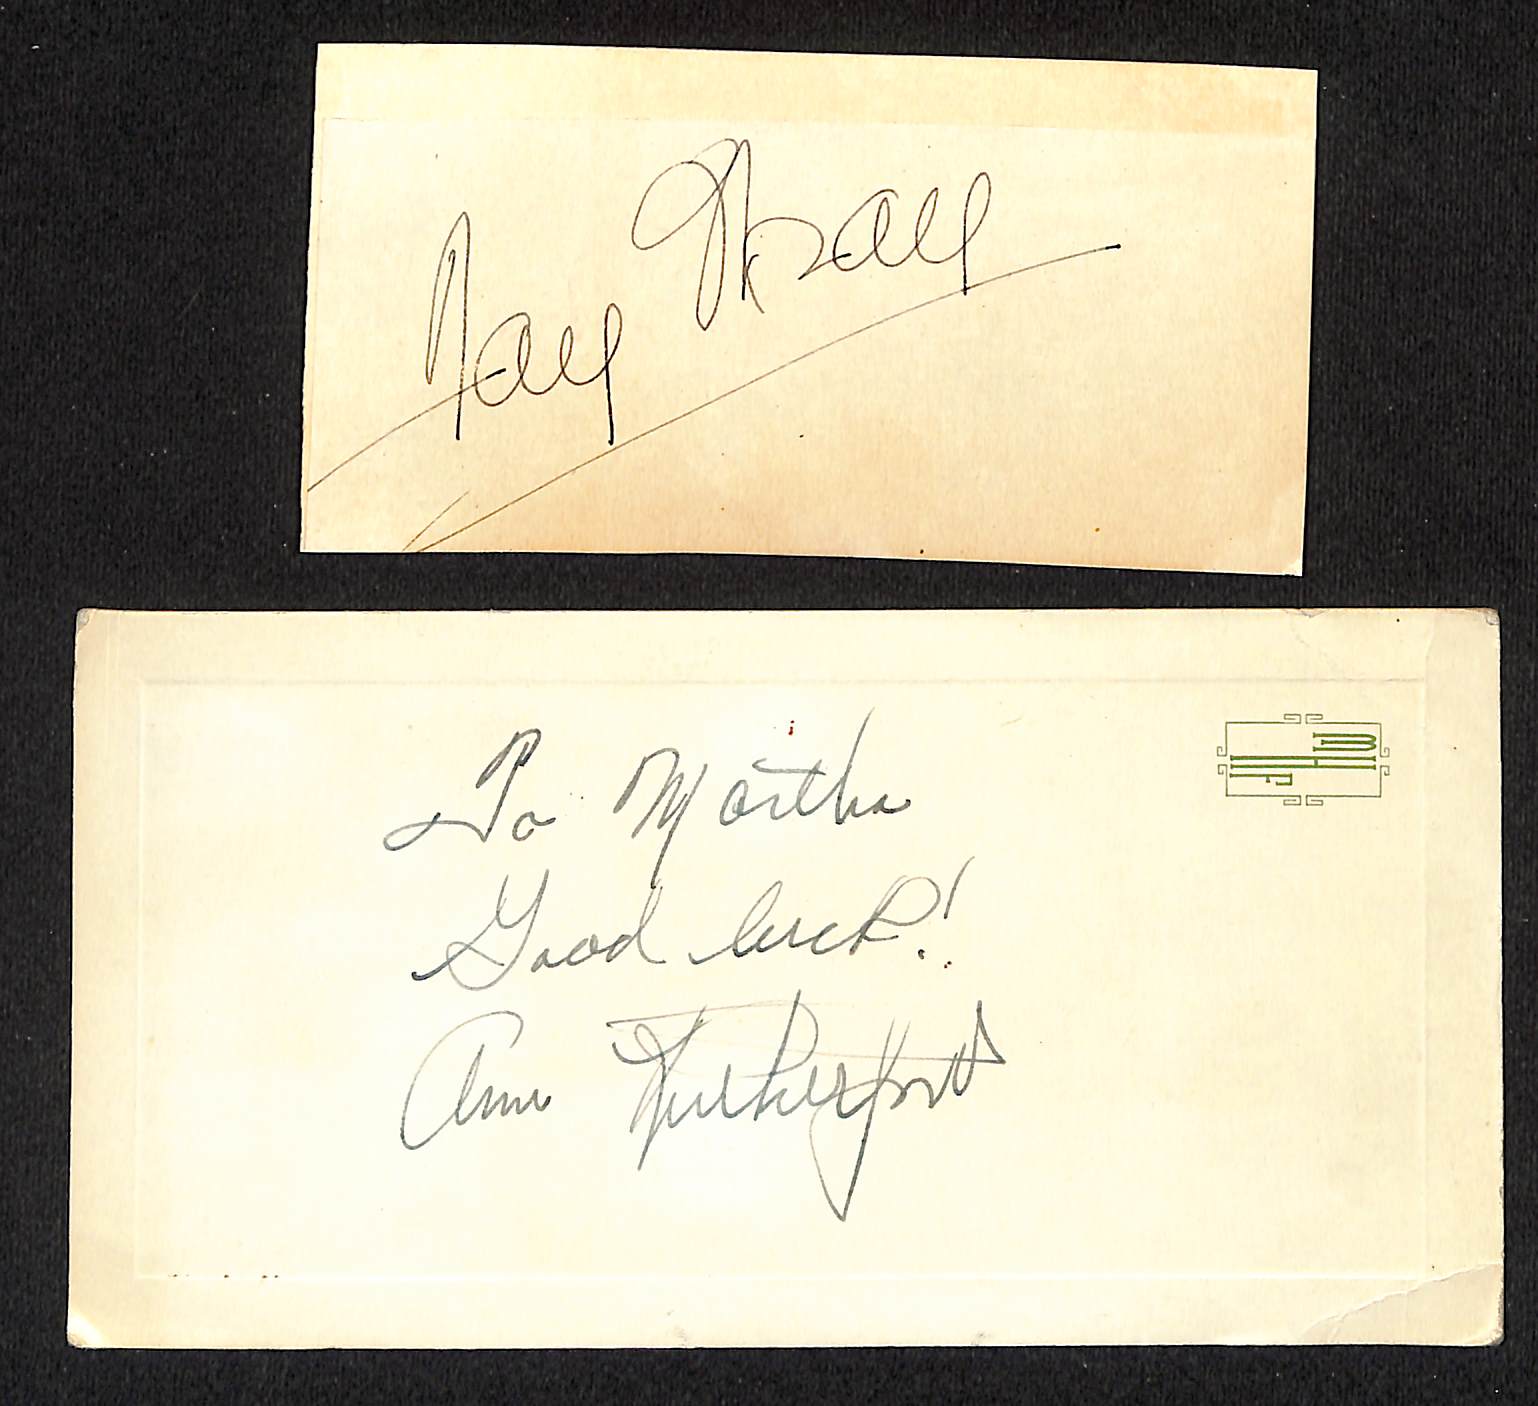 Fay Wray
To Martha
Good luck!
Ann Rutherford